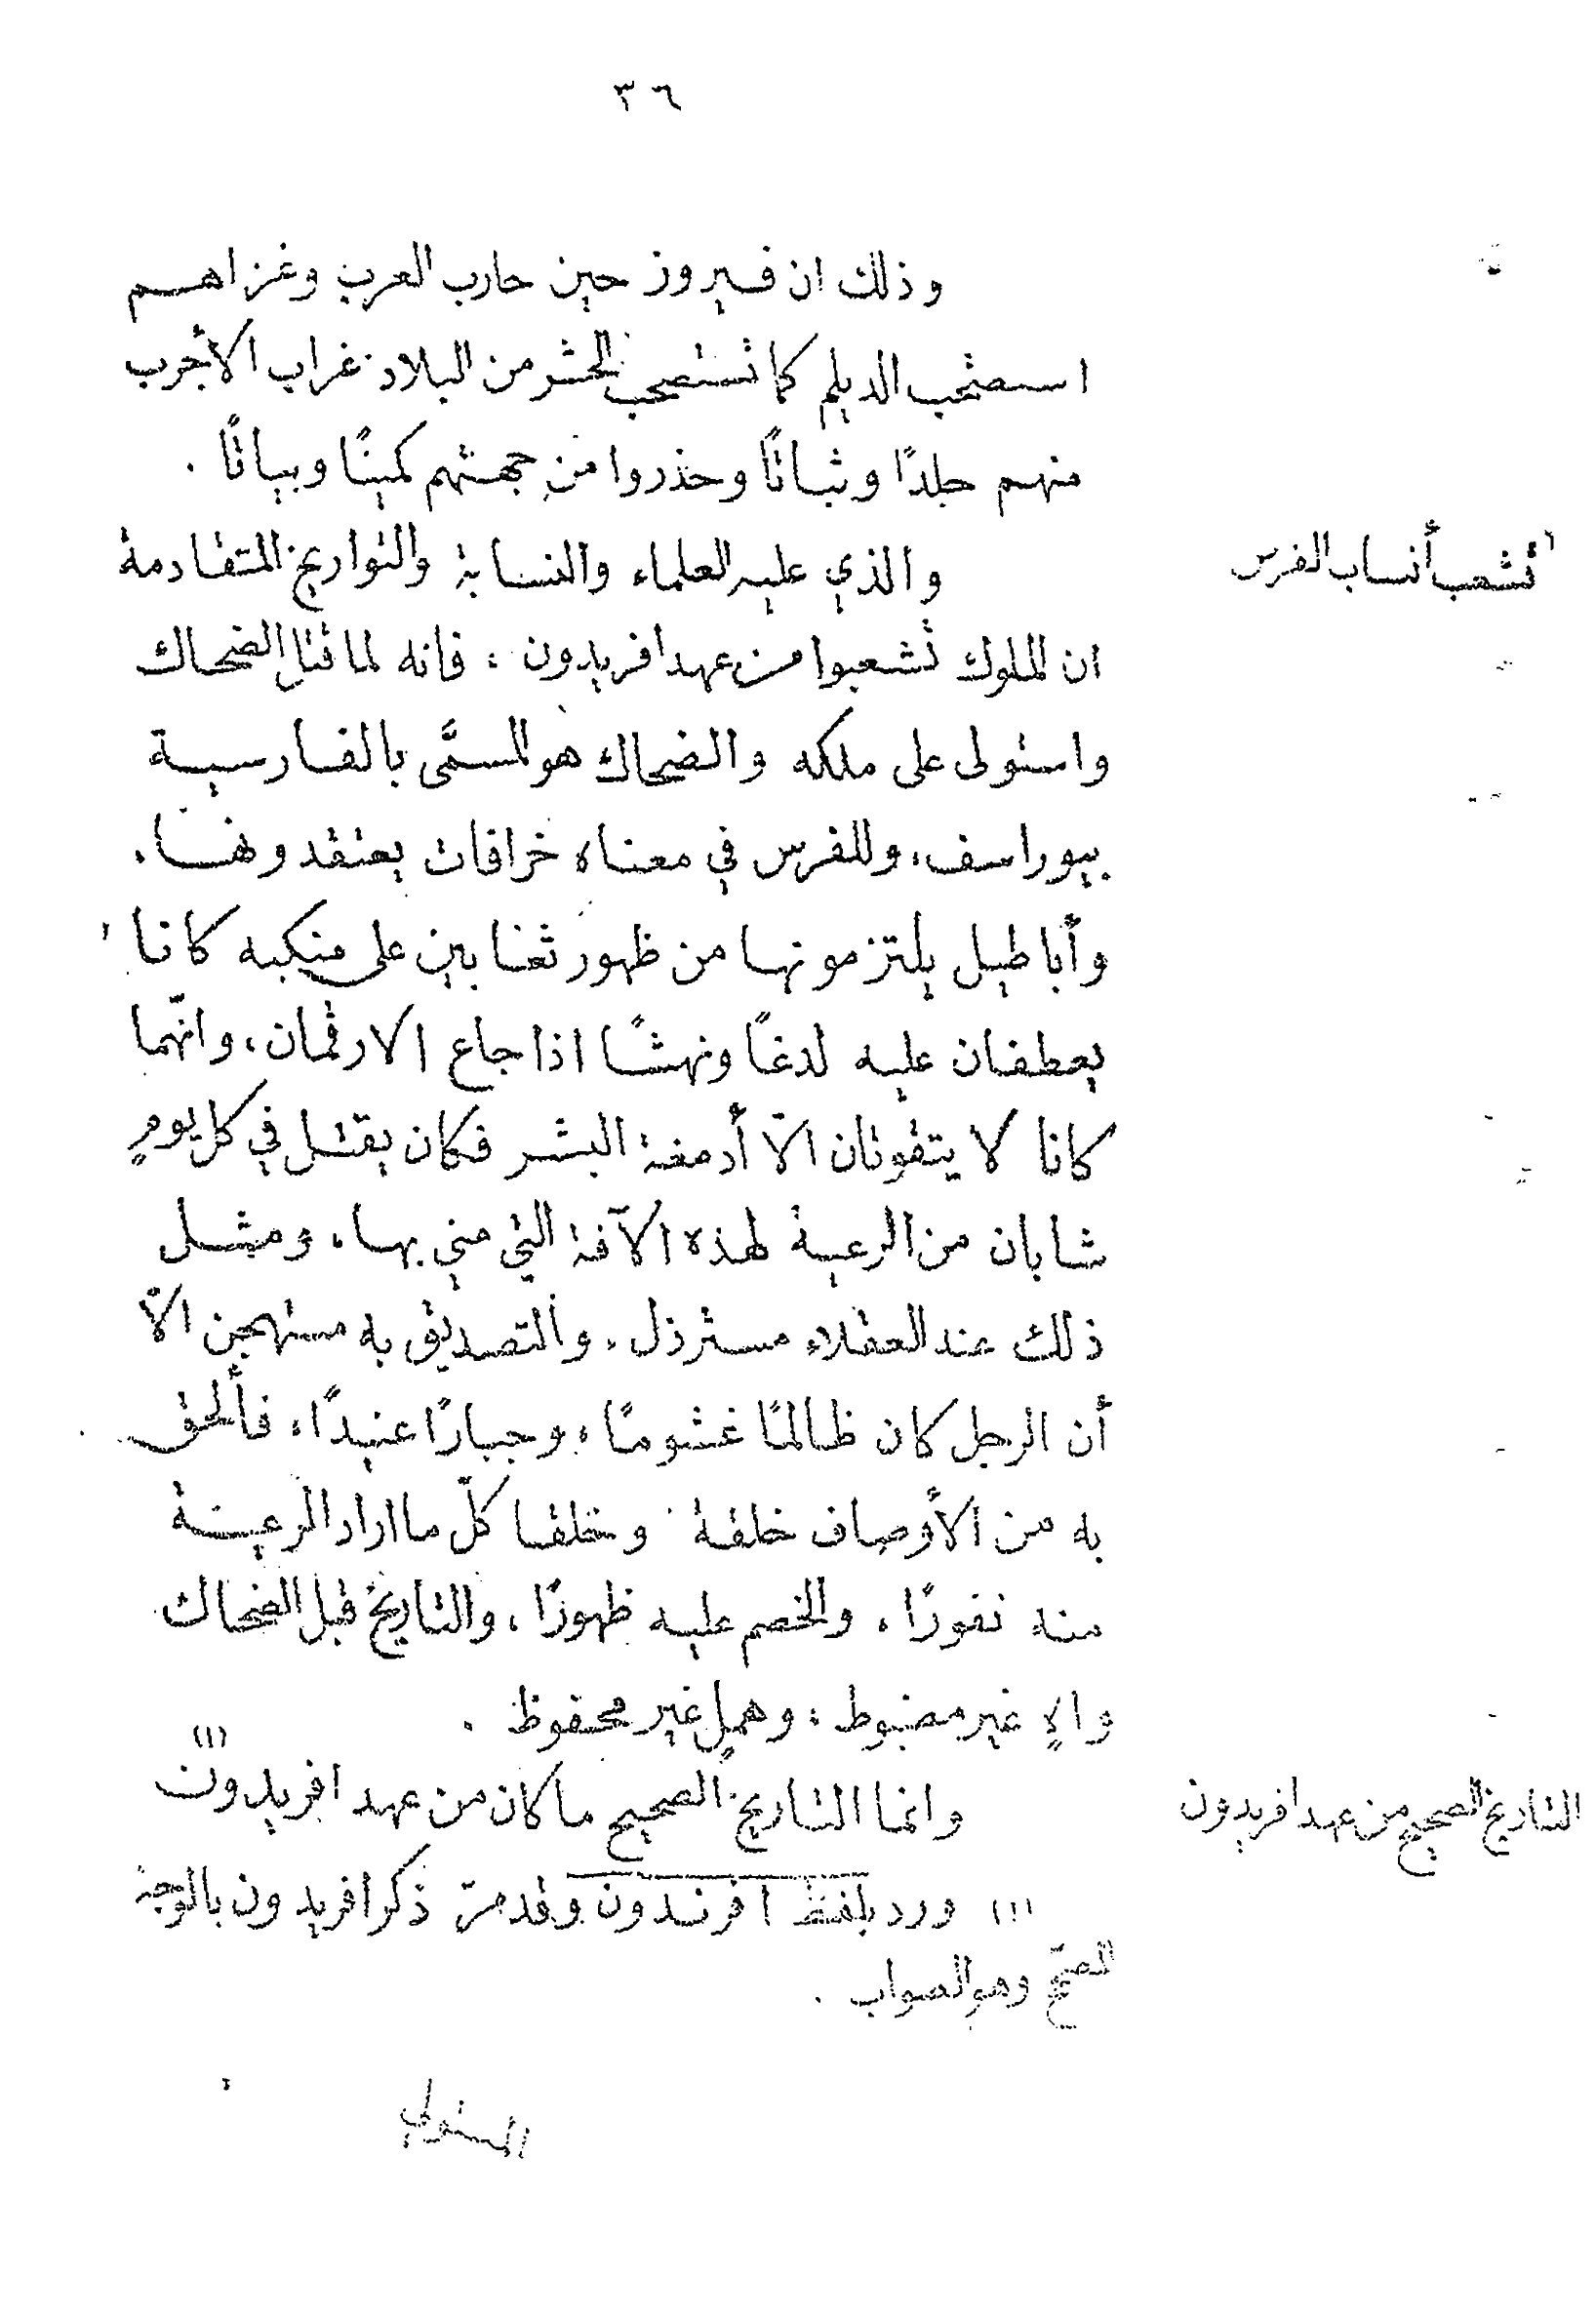 ٣٦
وذلك ان فيروز حين حارب العرب وغزاهم
استصحب الديلم كما تستصحب الحشر من البلاد غراب الأجرب
منهم جلدًا وثباتًا وحذروا من جهتهم كمينًا وبياتًا .
تشعب أنساب الفرس
والذي عليه العلماء والنسابة والتواريخ المتقادمة
ان الملوك تشعبوا من عهد افريدون ، فانه لما قتل الضحاك
واستولى على ملكه والضحاك هو المسمَّى بالفارسية
بيوراسف، وللفرس في معناه خرافات يعتقدونها.
وأباطيل يلتزمونها من ظهور ثعنابين على منكبه كانا
يعطفان عليه لدغًا ونهشًا اذا جاع الارقمان، وانّهما
كانا لا يتقوتان الاّ أدمغة البشر فكان يقتل في كل يومٍ
شابان من الرعية لهذه الآفة التي مني بها، ومثل
ذلك عند العقلاء مسترذل، والتصديق به مستهجن الاّ
أن الرجل كان ظالمًا غشومًا، وجبارًا عنيدًا، فألحق
به من الأوصاف خلقة وخلقا كلّ ما اراد الرعية
منه نفورًا، والخصم عليه ظهورًا، والتاريخ قبل الضحاك
والٍ غير مضبوط ، وهملٍ غير محفوظ .
التاريخ الصحيح من عهد افريدون
وانما التاريخ الصحيح ما كان من عهد افريدون (١)
(١) ورد بلفظ افرندون وقد مرّ ذكر افريدون بالوجه
المصحّح وهو الصواب .
المستولي